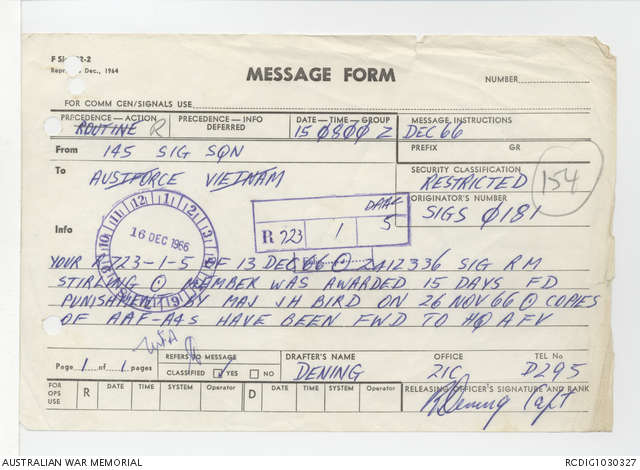 F Sig 2-2
Dec., 1964
MESSAGE FORM
NUMBER
FOR COMM CEN/SIGNALS USE
PRECEDENCE—ACTION
ROUTINE R
PRECEDENCE—INFO
DEFERRED
DATE—TIME—GROUP
150800 Z
MESSAGE INSTRUCTIONS
DEC 66
From 145 SIG SQN
PREFIX GR
To AUSTFORCE VIETNAM
SECURITY CLASSIFICATION
RESTRICTED
154
ORIGINATOR'S NUMBER
SIGS 0181
R 723 1 5
16 DEC 1966
Info
YOUR R 723-1-5 OF 13 DEC 66 2412336 SIG R M
STIRLING MEMBER WAS AWARDED 15 DAYS FD
PUNISHMENT BY MAJ JH BIRD ON 26 NOV 66 COPIES
OF AAF-A4S HAVE BEEN FWD TO HQ AFV
Page 1 of 1 pages
REFERS TO MESSAGE
CLASSIFIED YES NO
DRAFTER'S NAME
DENING
OFFICE
2IC
TEL No
D295
FOR OPS USE
R DATE TIME SYSTEM Operator D DATE TIME SYSTEM Operator
RELEASING OFFICER'S SIGNATURE AND RANK
R Dening Capt
AUSTRALIAN WAR MEMORIAL
RCDIG1030327